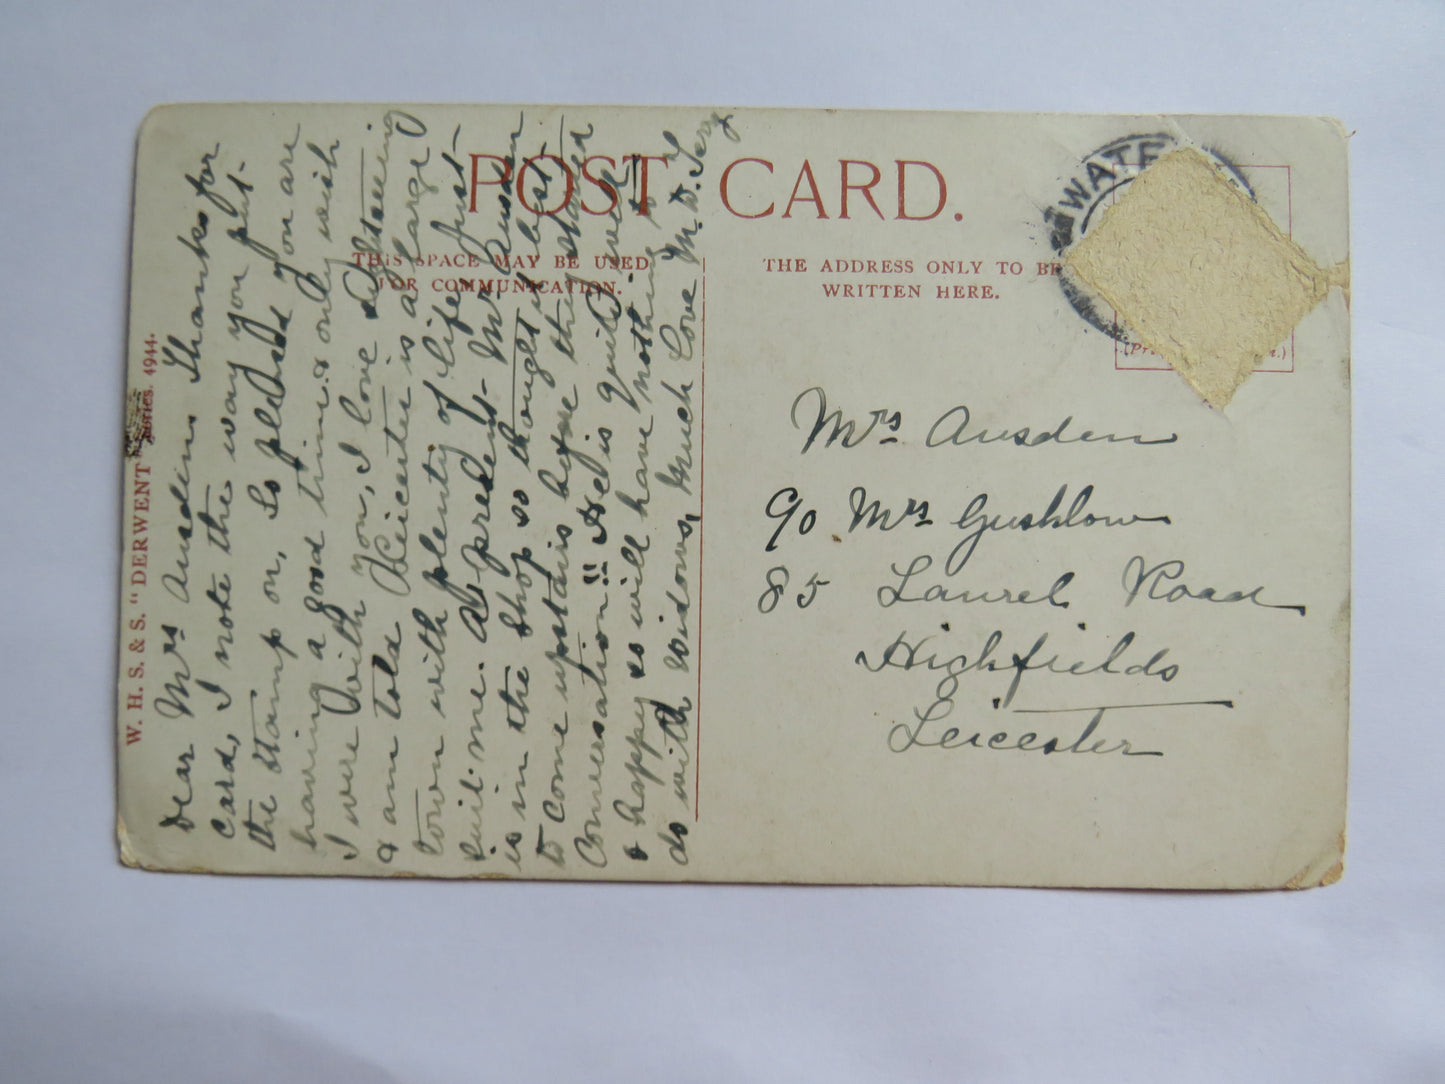 POST CARD.
THIS SPACE MAY BE USED
FOR COMMUNICATION.
THE ADDRESS ONLY TO BE
WRITTEN HERE.
W. H. S. & S. "DERWENT" Series. 4944.
WATE
Dear Mrs Ausden Thanks for
card, I note the way you put
the stamp on, So pleased you are
having a good time & only wish
I were with you, I love
& am told Leicester is a large
town with plenty of life, just
suit me. At present Mr Ausden
is in the Shop so thought it best
to come upstairs before they started
Conversation!! He is quite well
& happy so will have nothing to
do with widows, Much Love M. D.
Mrs Ausden
c/o Mrs
85 Laurel Road
Highfields
Leicester